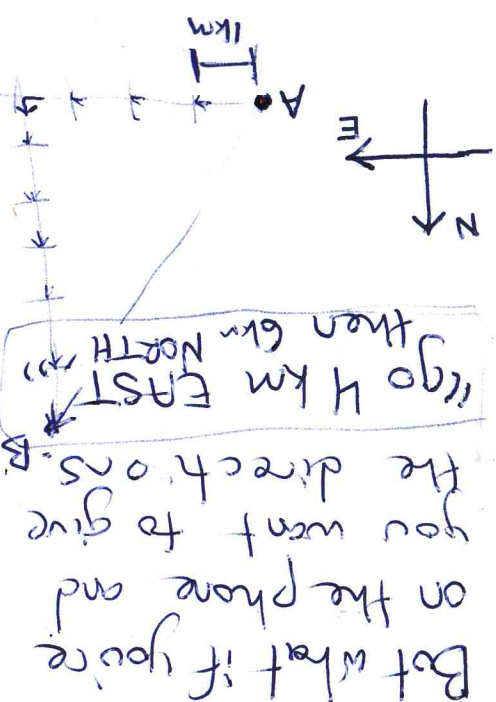 But what if you're
on the phone and
you want to give
the directions.
"go 4 km EAST
then 6km NORTH"
B
N
E
A
1km